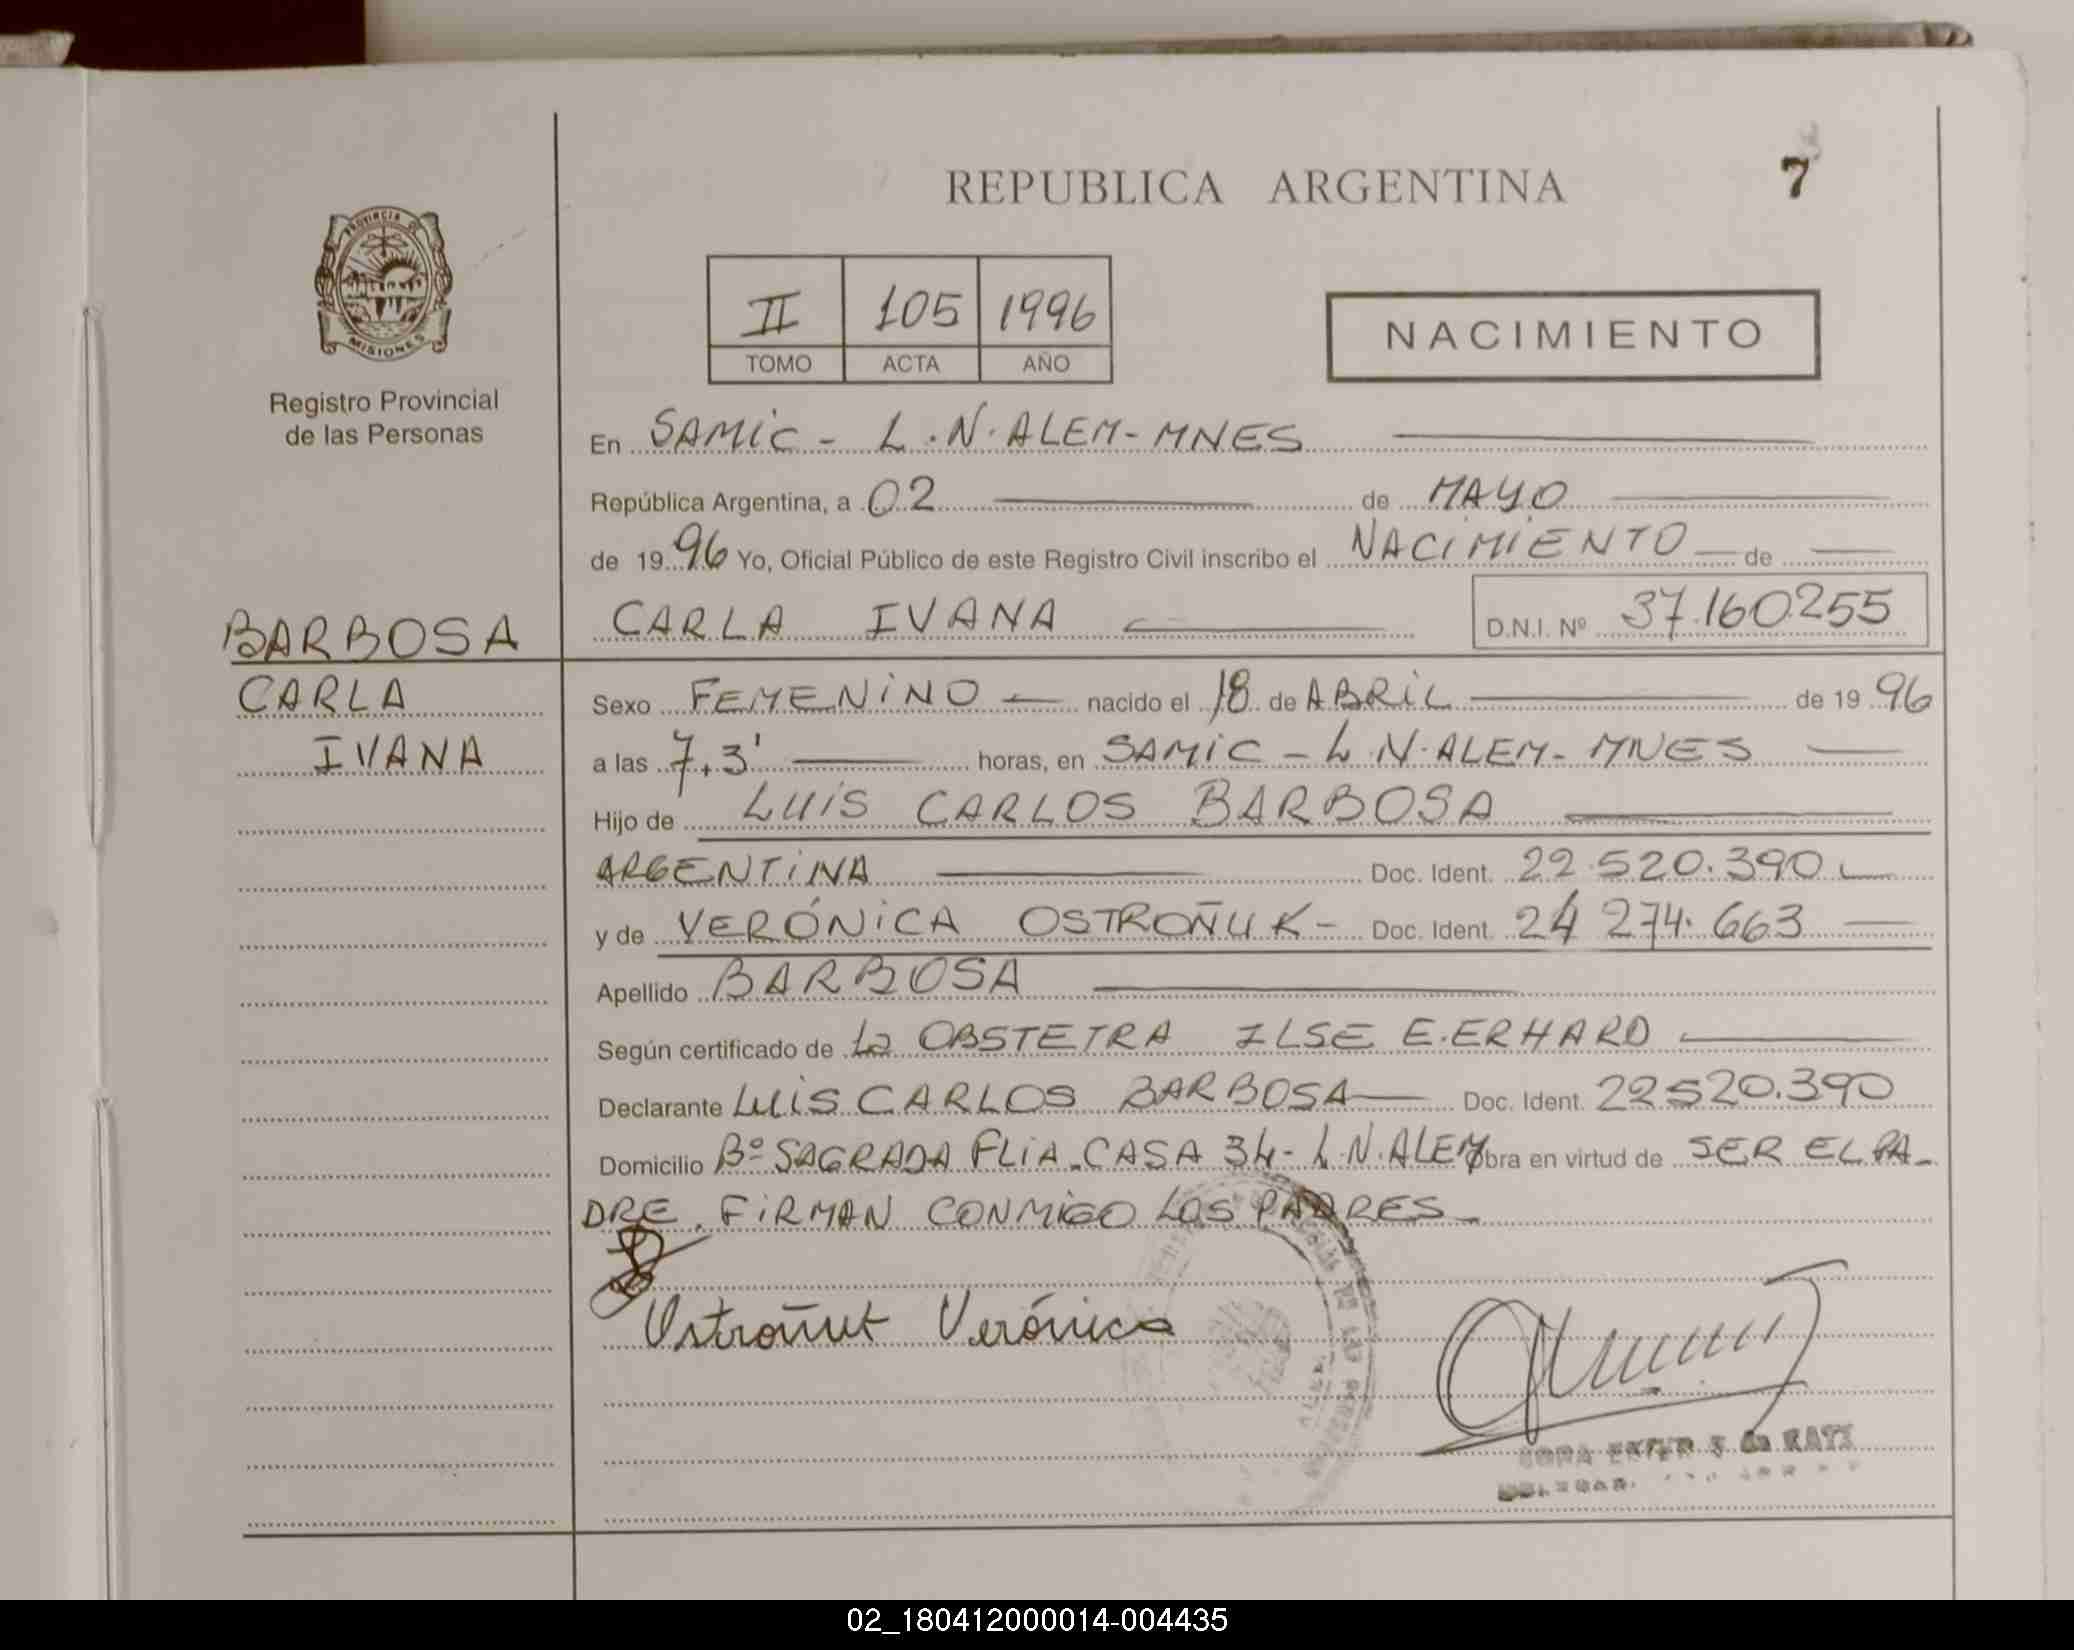 REPUBLICA ARGENTINA
7
PROVINCIA DE
MISIONES
Registro Provincial
de las Personas
II 105 1996
TOMO ACTA AÑO
NACIMIENTO
En SAMIC - L.N.ALEM-MNES
República Argentina, a 02 de MAYO
de 1996 Yo, Oficial Público de este Registro Civil inscribo el NACIMIENTO de
CARLA IVANA D.N.I. Nº 37.160.255
BARBOSA
CARLA
IVANA
Sexo FEMENINO nacido el 18 de ABRIL de 1996
a las 7,3' horas, en SAMIC - L.N.ALEM- MNES
Hijo de LUIS CARLOS BARBOSA
ARGENTINA Doc. Ident. 22.520.390
y de VERÓNICA OSTROÑUK- Doc. Ident. 24 274.663
Apellido BARBOSA
Según certificado de La OBSTETRA ILSE E.ERHARD
Declarante LUIS CARLOS BARBOSA Doc. Ident. 22.520.390
Domicilio Bº SAGRADA FLIA.CASA 34- L.N.ALEM Obra en virtud de SER EL PA-
DRE. FIRMAN CONMIGO LOS PADRES-
Verónica
02_180412000014-004435